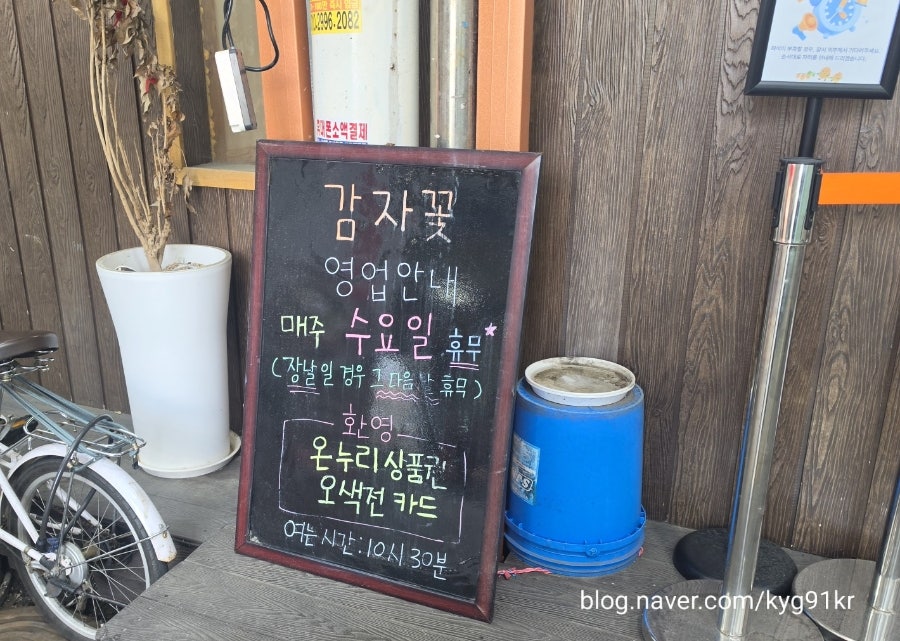 2996-2082
대폰소액결제
감자꽃
영업안내
매주 수요일 휴무*
(장날일 경우 그 다음날 휴무)
환영
온누리상품권
오색전 카드
여는 시간 : 10시 30분
blog.naver.com/kyg91kr